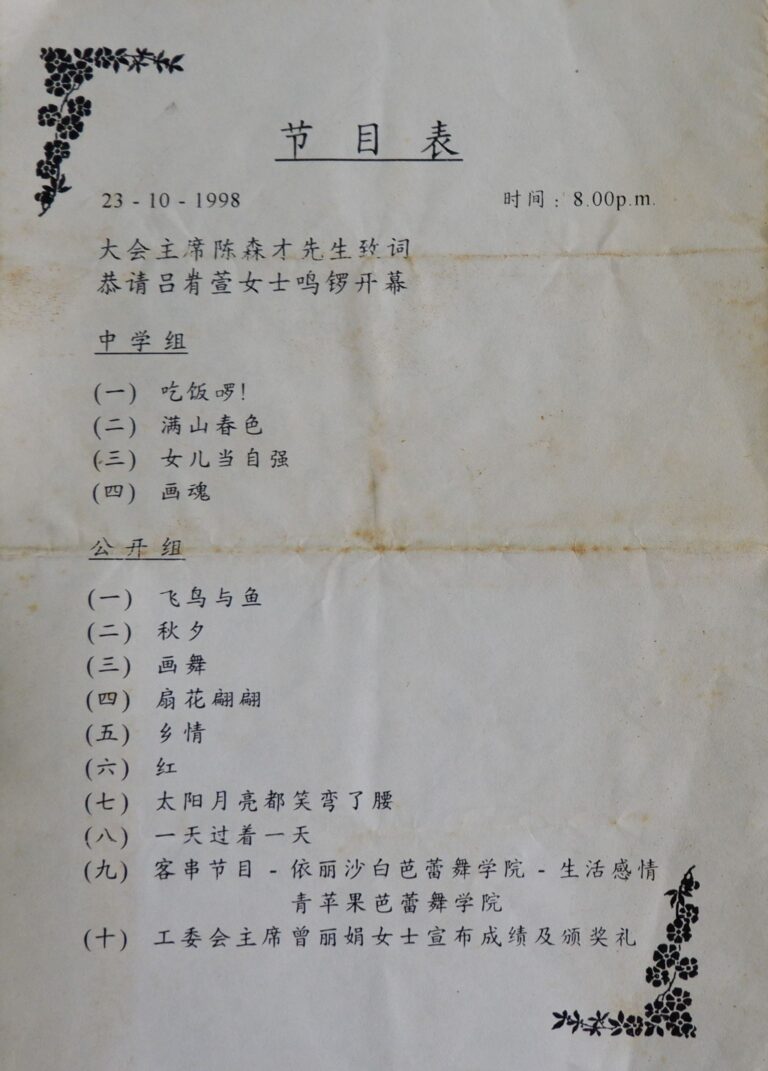 节目表
23 - 10 - 1998 时间：8.00p.m.
大会主席陈森才先生致词
恭请吕肴萱女士鸣锣开幕
中学组
(一) 吃饭啰!
(二) 满山春色
(三) 女儿当自强
(四) 画魂
公开组
(一) 飞鸟与鱼
(二) 秋夕
(三) 画舞
(四) 扇花翩翩
(五) 乡情
(六) 红
(七) 太阳月亮都笑弯了腰
(八) 一天过着一天
(九) 客串节目 - 依丽沙白芭蕾舞学院 - 生活感情
青苹果芭蕾舞学院
(十) 工委会主席曾丽娟女士宣布成绩及颁奖礼